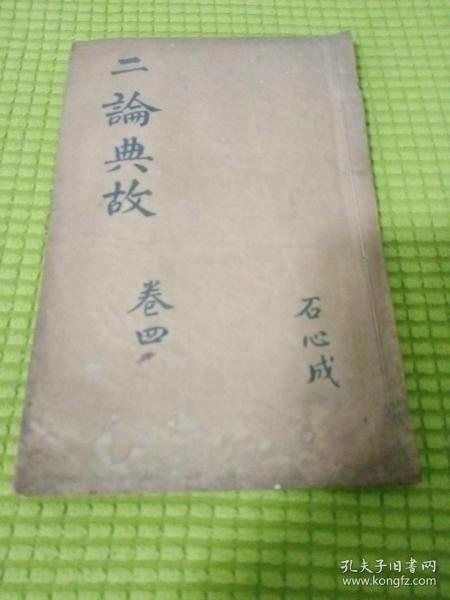 二論典故
卷四
石心成
孔夫子旧书网
www.kongfz.com